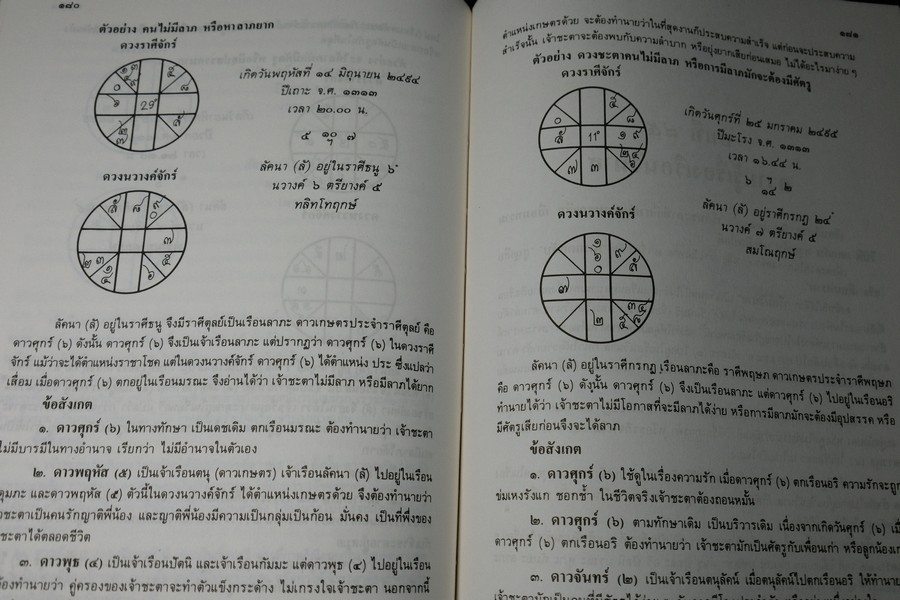 ๑๘๐
ตัวอย่าง คนไม่มีลาภ หรือหาลาภยาก
ดวงราศีจักร์
เกิดวันพฤหัสที่ ๑๔ มิถุนายน ๒๔๙๔
ปีเถาะ จ.ศ. ๑๓๑๓
เวลา ๒๐.๐๐ น.
๕ ๑๐ ๗
ฯ
ลัคนา (ลั) อยู่ในราศีธนู ๖°
นวางค์ ๖ ตรียางค์ ๕
ทลิทโทฤกษ์
ดวงนวางค์จักร์
ลัคนา (ลั) อยู่ในราศีธนู จึงมีราศีตุลย์เป็นเรือนลาภะ ดาวเกษตรประจำราศีตุลย์ คือ
ดาวศุกร์ (๖) ดังนั้น ดาวศุกร์ (๖) จึงเป็นเจ้าเรือนลาภะ แต่ปรากฏว่า ดาวศุกร์ (๖) ในดวงราศี
จักร์ แม้ว่าจะได้ตำแหน่งราชาโชค แต่ในดวงนวางค์จักร์ ดาวศุกร์ (๖) ได้ตำแหน่ง ประ ซึ่งแปลว่า
เสื่อม เมื่อดาวศุกร์ (๖) ตกอยู่ในเรือนมรณะ จึงอ่านได้ว่า เจ้าชะตาไม่มีลาภ หรือมีลาภได้ยาก
ข้อสังเกต
๑. ดาวศุกร์ (๖) ในทางทักษา เป็นเดชเดิม ตกเรือนมรณะ ต้องทำนายว่า เจ้าชะตา
ไม่มีบารมีในทางอำนาจ เรียกว่า ไม่มีอำนาจในตัวเอง
๒. ดาวพฤหัส (๕) เป็นเจ้าเรือนตนุ (ดาวเกษตร) เจ้าเรือนลัคนา (ลั) ไปอยู่ในเรือน
ดุมภะ และดาวพฤหัส (๕) ตัวนี้ในดวงนวางค์จักร์ ได้ตำแหน่งเกษตรด้วย จึงต้องทำนายว่า
ชะตาเป็นคนรักญาติพี่น้อง และญาติพี่น้องมีความเป็นกลุ่มเป็นก้อน มั่นคง เป็นที่พึ่งของ
ชะตาได้ตลอดชีวิต
๓. ดาวพุธ (๔) เป็นเจ้าเรือนปัตนิ และเจ้าเรือนกัมมะ แต่ดาวพุธ (๔) ไปอยู่ในเรือน
ต้องทำนายว่า คู่ครองของเจ้าชะตาจะทำตัวแข็งกระด้าง ไม่เกรงใจเจ้าชะตา นอกจากนี้
๑๘๑
ตำแหน่งเกษตรด้วย จะต้องทำนายว่าในที่สุดงานก็ประสบความสำเร็จ แต่ก่อนจะประสบความ
สำเร็จนั้น เจ้าชะตาจะต้องพบกับความลำบาก หรือยุ่งยากเสียก่อนเสมอ ไม่ได้อะไรมาง่าย ๆ
ตัวอย่าง ดวงชะตาคนไม่มีลาภ หรือการมีลาภมักจะต้องมีศัตรู
ดวงราศีจักร์
เกิดวันศุกร์ที่ ๒๕ มกราคม ๒๔๙๕
ปีมะโรง จ.ศ. ๑๓๑๓
เวลา ๑๖.๔๔ น.
๖ ฯ ๒
๑๔
ลัคนา (ลั) อยู่ราศีกรกฏ ๒๔°
นวางค์ ๗ ตรียางค์ ๕
สมโณฤกษ์
ดวงนวางค์จักร์
ลัคนา (ลั) อยู่ในราศีกรกฏ เรือนลาภะคือ ราศีพฤษภ ดาวเกษตรประจำราศีพฤษภ
คือ ดาวศุกร์ (๖) ดังนั้น ดาวศุกร์ (๖) จึงเป็นเรือนลาภะ แต่ดาวศุกร์ (๖) ไปอยู่ในเรือนอริ
ทำนายได้ว่า เจ้าชะตาไม่มีโอกาสที่จะมีลาภได้ง่าย หรือการมีลาภมักจะต้องมีอุปสรรค หรือ
มีศัตรูเสียก่อนจึงจะได้ลาภ
ข้อสังเกต
๑. ดาวศุกร์ (๖) ใช้ดูในเรื่องความรัก เมื่อดาวศุกร์ (๖) ตกเรือนอริ ความรักจะถูก
ข่มเหงรังแก ชอกช้ำ ในชีวิตจริงเจ้าชะตาต้องถอนหมั้น
๒. ดาวศุกร์ (๖) ตามทักษาเดิม เป็นบริวารเดิม เนื่องจากเกิดวันศุกร์ (๖)
ดาวศุกร์ (๖) ตกเรือนอริ ต้องทำนายว่า เจ้าชะตามักเป็นศัตรูกับเพื่อนเก่า หรือลูกน้อง
๓. ดาวจันทร์ (๒) เป็นเจ้าเรือนตนุลัคน์ เมื่อตนุลัคน์ไปตกเรือนอริ ให้ทำนาย